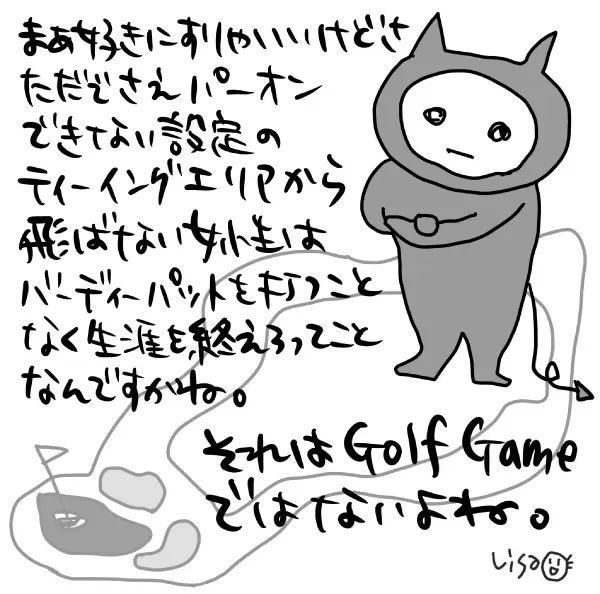 まあ好きにすりゃいいけどさ
ただでさえパーオン
できない設定の
ティーイングエリアから
飛ばない女性は
バーディーパットを打つこと
なく生涯を終えろってこと
なんですがね。
それはGolf Game
ではないよね。
Lisa